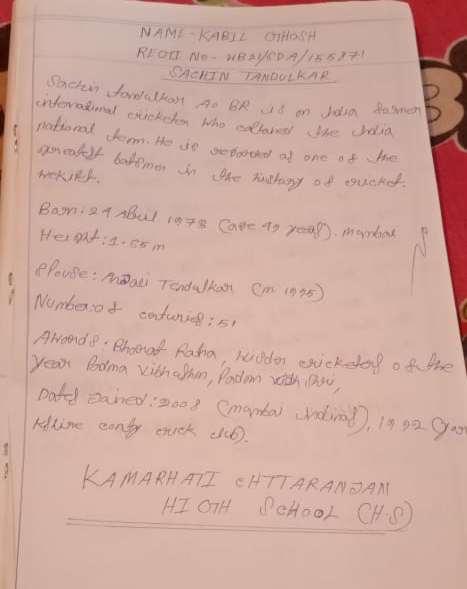 NAME - KABIL GHOSH
REGII NO - WB21/SDA/155871
SACHIN TANDULKAR
Sachin tandulkar AO BR is on India former
international cricketer who captained the India
national team. He is regarded as one of the
greatest batsmen in the history of cricket.
Born: 24 Abril 1973 (age 49 years). mumbai
Height: 1.65 m
Spouse: Anjali Tendulkar (m 1995)
Number of centuries: 51
Awards: Bharat Ratna, wisden cricketers of the
year Padma Vibhushan, Padma Shri,
Dates Joined: 2008 (mumbai indians), 1992 (Yor
KAMARHATI CHTTARANJAN
HIGH SCHOOL (H.S)